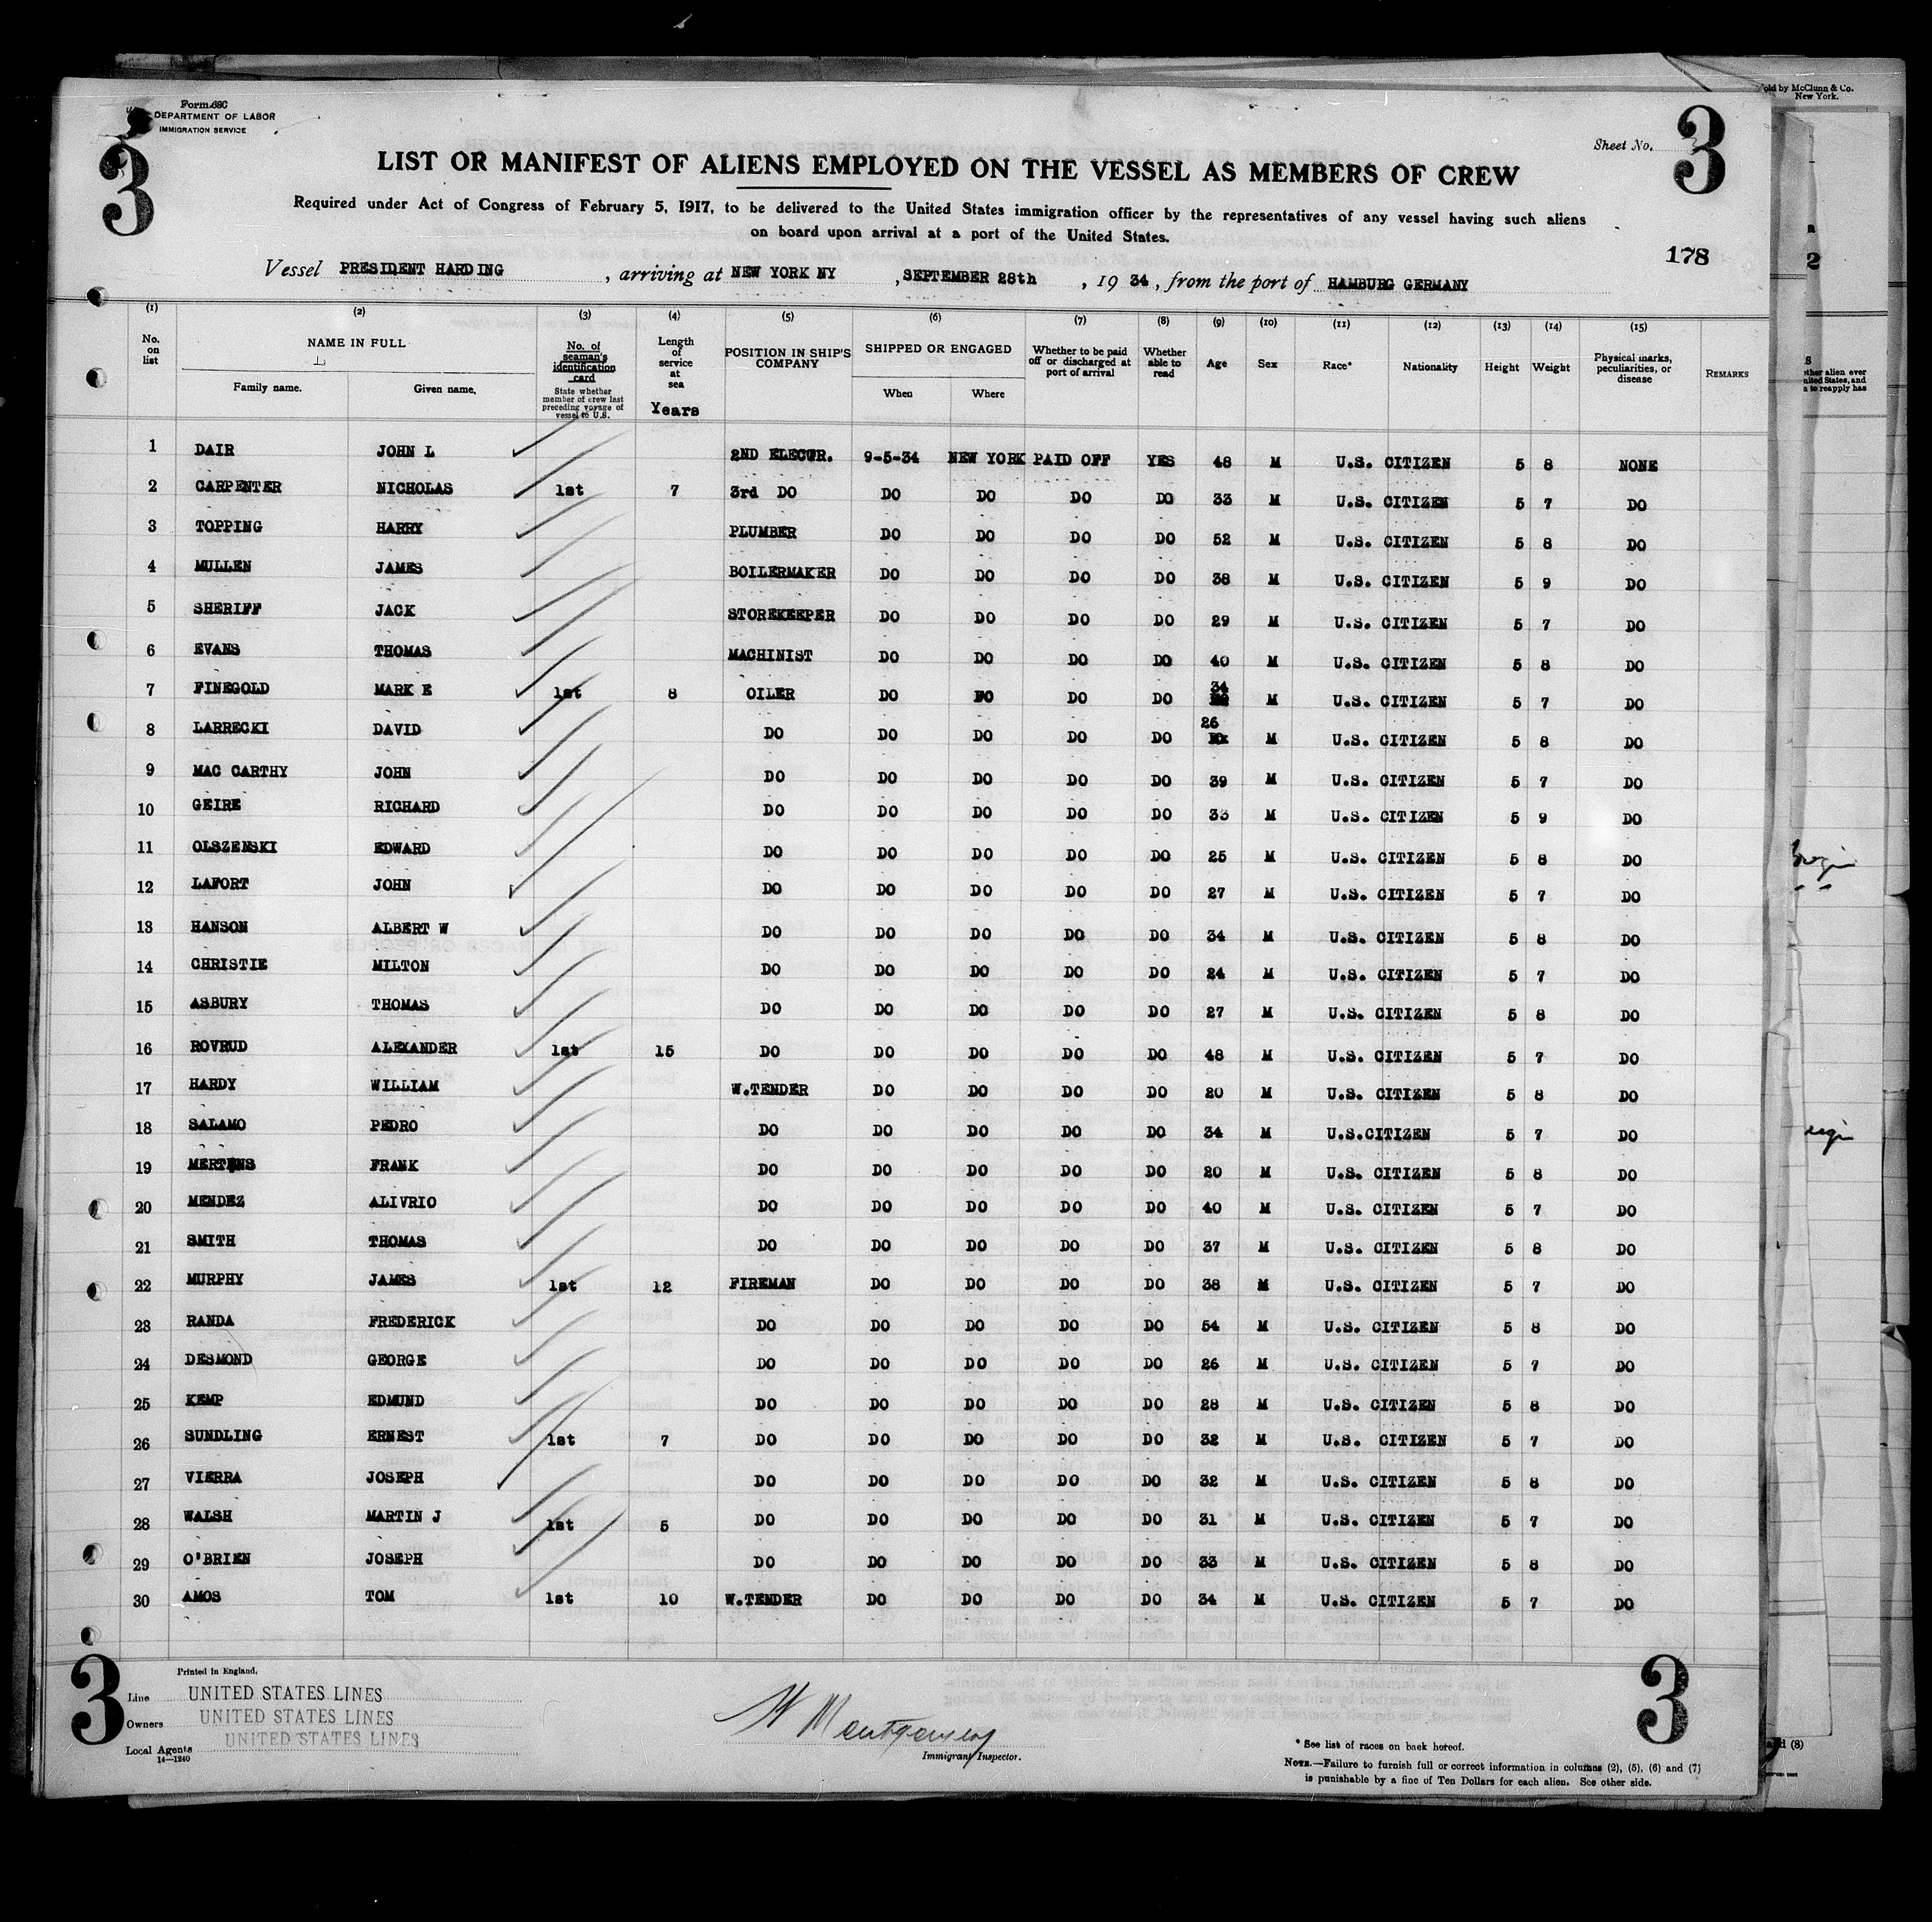 Form 680
DEPARTMENT OF LABOR
IMMIGRATION SERVICE
3
3
Sheet No.
old by McClunn & Co.
New York.
LIST OR MANIFEST OF ALIENS EMPLOYED ON THE VESSEL AS MEMBERS OF CREW
Required under Act of Congress of February 5, 1917, to be delivered to the United States immigration officer by the representatives of any vessel having such aliens
on board upon arrival at a port of the United States.
178
Vessel PRESIDENT HARDING, arriving at NEW YORK NY, SEPTEMBER 28th, 1934, from the port of HAMBURG GERMANY
(1) (2) (3) (4) (5) (6) (7) (8) (9) (10) (11) (12) (13) (14) (15)
No. on list NAME IN FULL Family name. Given name. No. of seaman's identification card State whether member of crew last preceding voyage of vessel to U.S. Length of service at sea Years POSITION IN SHIP'S COMPANY SHIPPED OR ENGAGED When Where Whether to be paid off or discharged at port of arrival Whether able to read Age Sex Race* Nationality Height Weight Physical marks, peculiarities, or disease REMARKS
1 DAIR JOHN L 2ND ELECTR. 9-5-34 NEW YORK PAID OFF YES 48 M U.S. CITIZEN 5 8 NONE
2 CARPENTER NICHOLAS 1st 7 3rd DO DO DO DO DO 33 M U.S. CITIZEN 5 7 DO
3 TOPPING HARRY PLUMBER DO DO DO DO 52 M U.S. CITIZEN 5 8 DO
4 MULLEN JAMES BOILERMAKER DO DO DO DO 38 M U.S. CITIZEN 5 9 DO
5 SHERIFF JACK STOREKEEPER DO DO DO DO 29 M U.S. CITIZEN 5 7 DO
6 EVANS THOMAS MACHINIST DO DO DO DO 40 M U.S. CITIZEN 5 8 DO
7 FINEGOLD MARK E 1st 8 OILER DO DO DO DO 34 M U.S. CITIZEN 5 7 DO
8 LARRECKI DAVID DO DO DO DO DO 26 M U.S. CITIZEN 5 8 DO
9 MAC CARTHY JOHN DO DO DO DO DO 39 M U.S. CITIZEN 5 7 DO
10 GEIRE RICHARD DO DO DO DO DO 33 M U.S. CITIZEN 5 9 DO
11 OLSZENSKI EDWARD DO DO DO DO DO 25 M U.S. CITIZEN 5 8 DO
12 LAFORT JOHN DO DO DO DO DO 27 M U.S. CITIZEN 5 7 DO
13 HANSON ALBERT W DO DO DO DO DO 34 M U.S. CITIZEN 5 8 DO
14 CHRISTIE MILTON DO DO DO DO DO 24 M U.S. CITIZEN 5 7 DO
15 ASBURY THOMAS DO DO DO DO DO 27 M U.S. CITIZEN 5 8 DO
16 ROVRUD ALEXANDER 1st 15 DO DO DO DO DO 48 M U.S. CITIZEN 5 7 DO
17 HARDY WILLIAM W.TENDER DO DO DO DO 20 M U.S. CITIZEN 5 8 DO
18 SALAMO PEDRO DO DO DO DO DO 34 M U.S.CITIZEN 5 7 DO
19 MERTENS FRANK DO DO DO DO DO 20 M U.S. CITIZEN 5 8 DO
20 MENDEZ ALIVRIO DO DO DO DO DO 40 M U.S. CITIZEN 5 7 DO
21 SMITH THOMAS DO DO DO DO DO 37 M U.S. CITIZEN 5 8 DO
22 MURPHY JAMES 1st 12 FIREMAN DO DO DO DO 38 M U.S. CITIZEN 5 7 DO
23 RANDA FREDERICK DO DO DO DO DO 54 M U.S. CITIZEN 5 8 DO
24 DESMOND GEORGE DO DO DO DO DO 26 M U.S. CITIZEN 5 7 DO
25 KEMP EDMUND DO DO DO DO DO 28 M U.S. CITIZEN 5 8 DO
26 SUNDLING ERNEST 1st 7 DO DO DO DO DO 32 M U.S. CITIZEN 5 7 DO
27 VIERRA JOSEPH DO DO DO DO DO 32 M U.S. CITIZEN 5 8 DO
28 WALSH MARTIN J 1st 5 DO DO DO DO DO 31 M U.S. CITIZEN 5 7 DO
29 O'BRIEN JOSEPH DO DO DO DO DO 33 M U.S. CITIZEN 5 8 DO
30 AMOS TOM 1st 10 W.TENDER DO DO DO DO 34 M U.S. CITIZEN 5 7 DO
3
3
Printed in England.
Line UNITED STATES LINES
Owners UNITED STATES LINES
Local Agents UNITED STATES LINES
14—1240
Montgomery
Immigrant Inspector.
* See list of races on back hereof.
NOTE.—Failure to furnish full or correct information in columns (2), (5), (6) and (7)
is punishable by a fine of Ten Dollars for each alien. See other side.